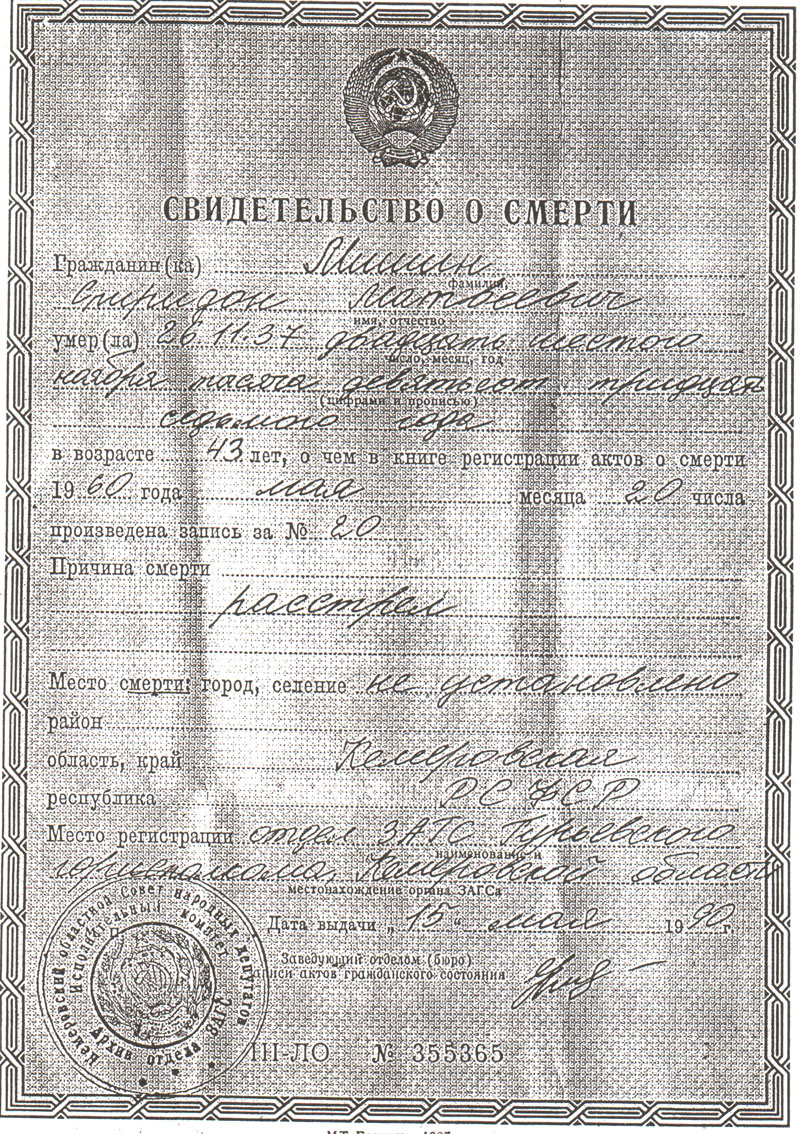 СВИДЕТЕЛЬСТВО О СМЕРТИ
Гражданин(ка) Мишин
фамилия,
Спиридон Матвеевич
имя, отчество
умер(ла) 26.11.37 двадцать шестого
число, месяц, год
ноября тысяча девятьсот тридцать
(цифрами и прописью)
седьмого года
в возрасте 43 лет, о чем в книге регистрации актов о смерти
19 60 года мая месяца 20 числа
произведена запись за № 20
Причина смерти
расстрел
Место смерти: город, селение не установлено
район
область, край Кемеровская
республика РСФСР
Место регистрации отдел ЗАГС Гурьевского
наименование и
горисполкома Кемеровской области
местонахождение органа ЗАГСа
Дата выдачи „ 15 " мая 19 90 г.
Заведующий отделом (бюро)
записи актов гражданского состояния
Кемеровский областной Совет народных депутатов
Исполнительный комитет
Архив отдела ЗАГС
III-ЛО № 355365